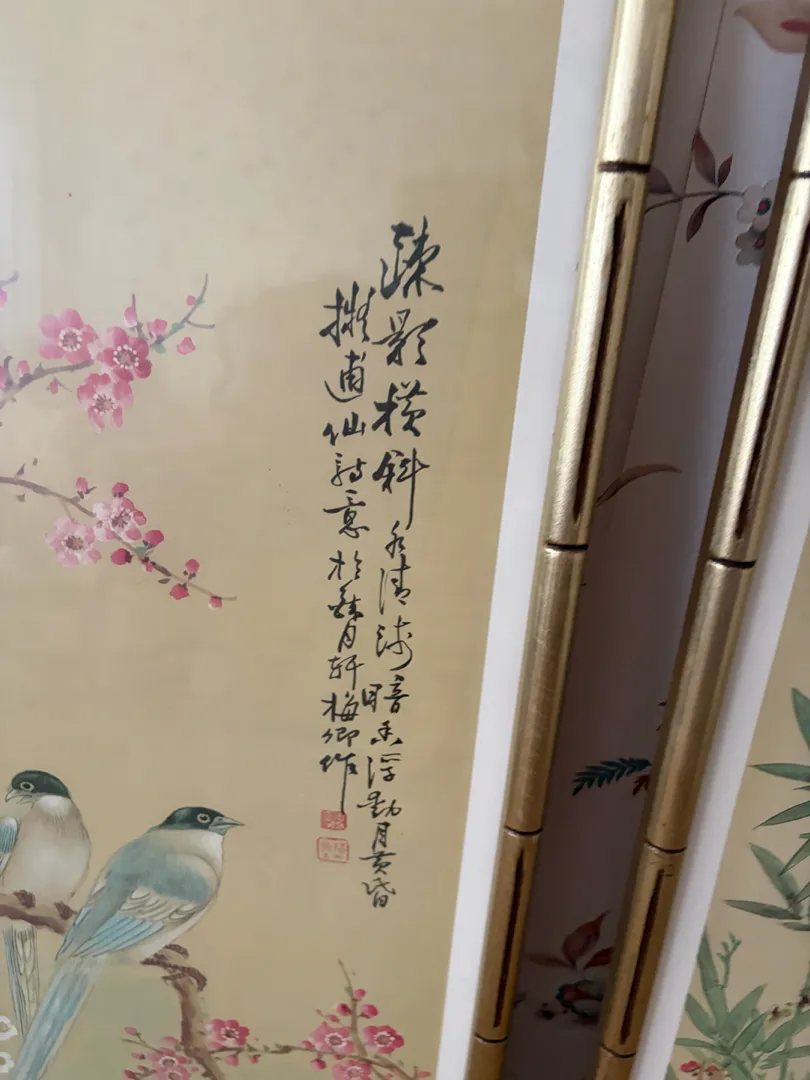 疎影橫斜水清浅暗香浮動月黃昏
擬逋仙詩意於月軒梅卿作